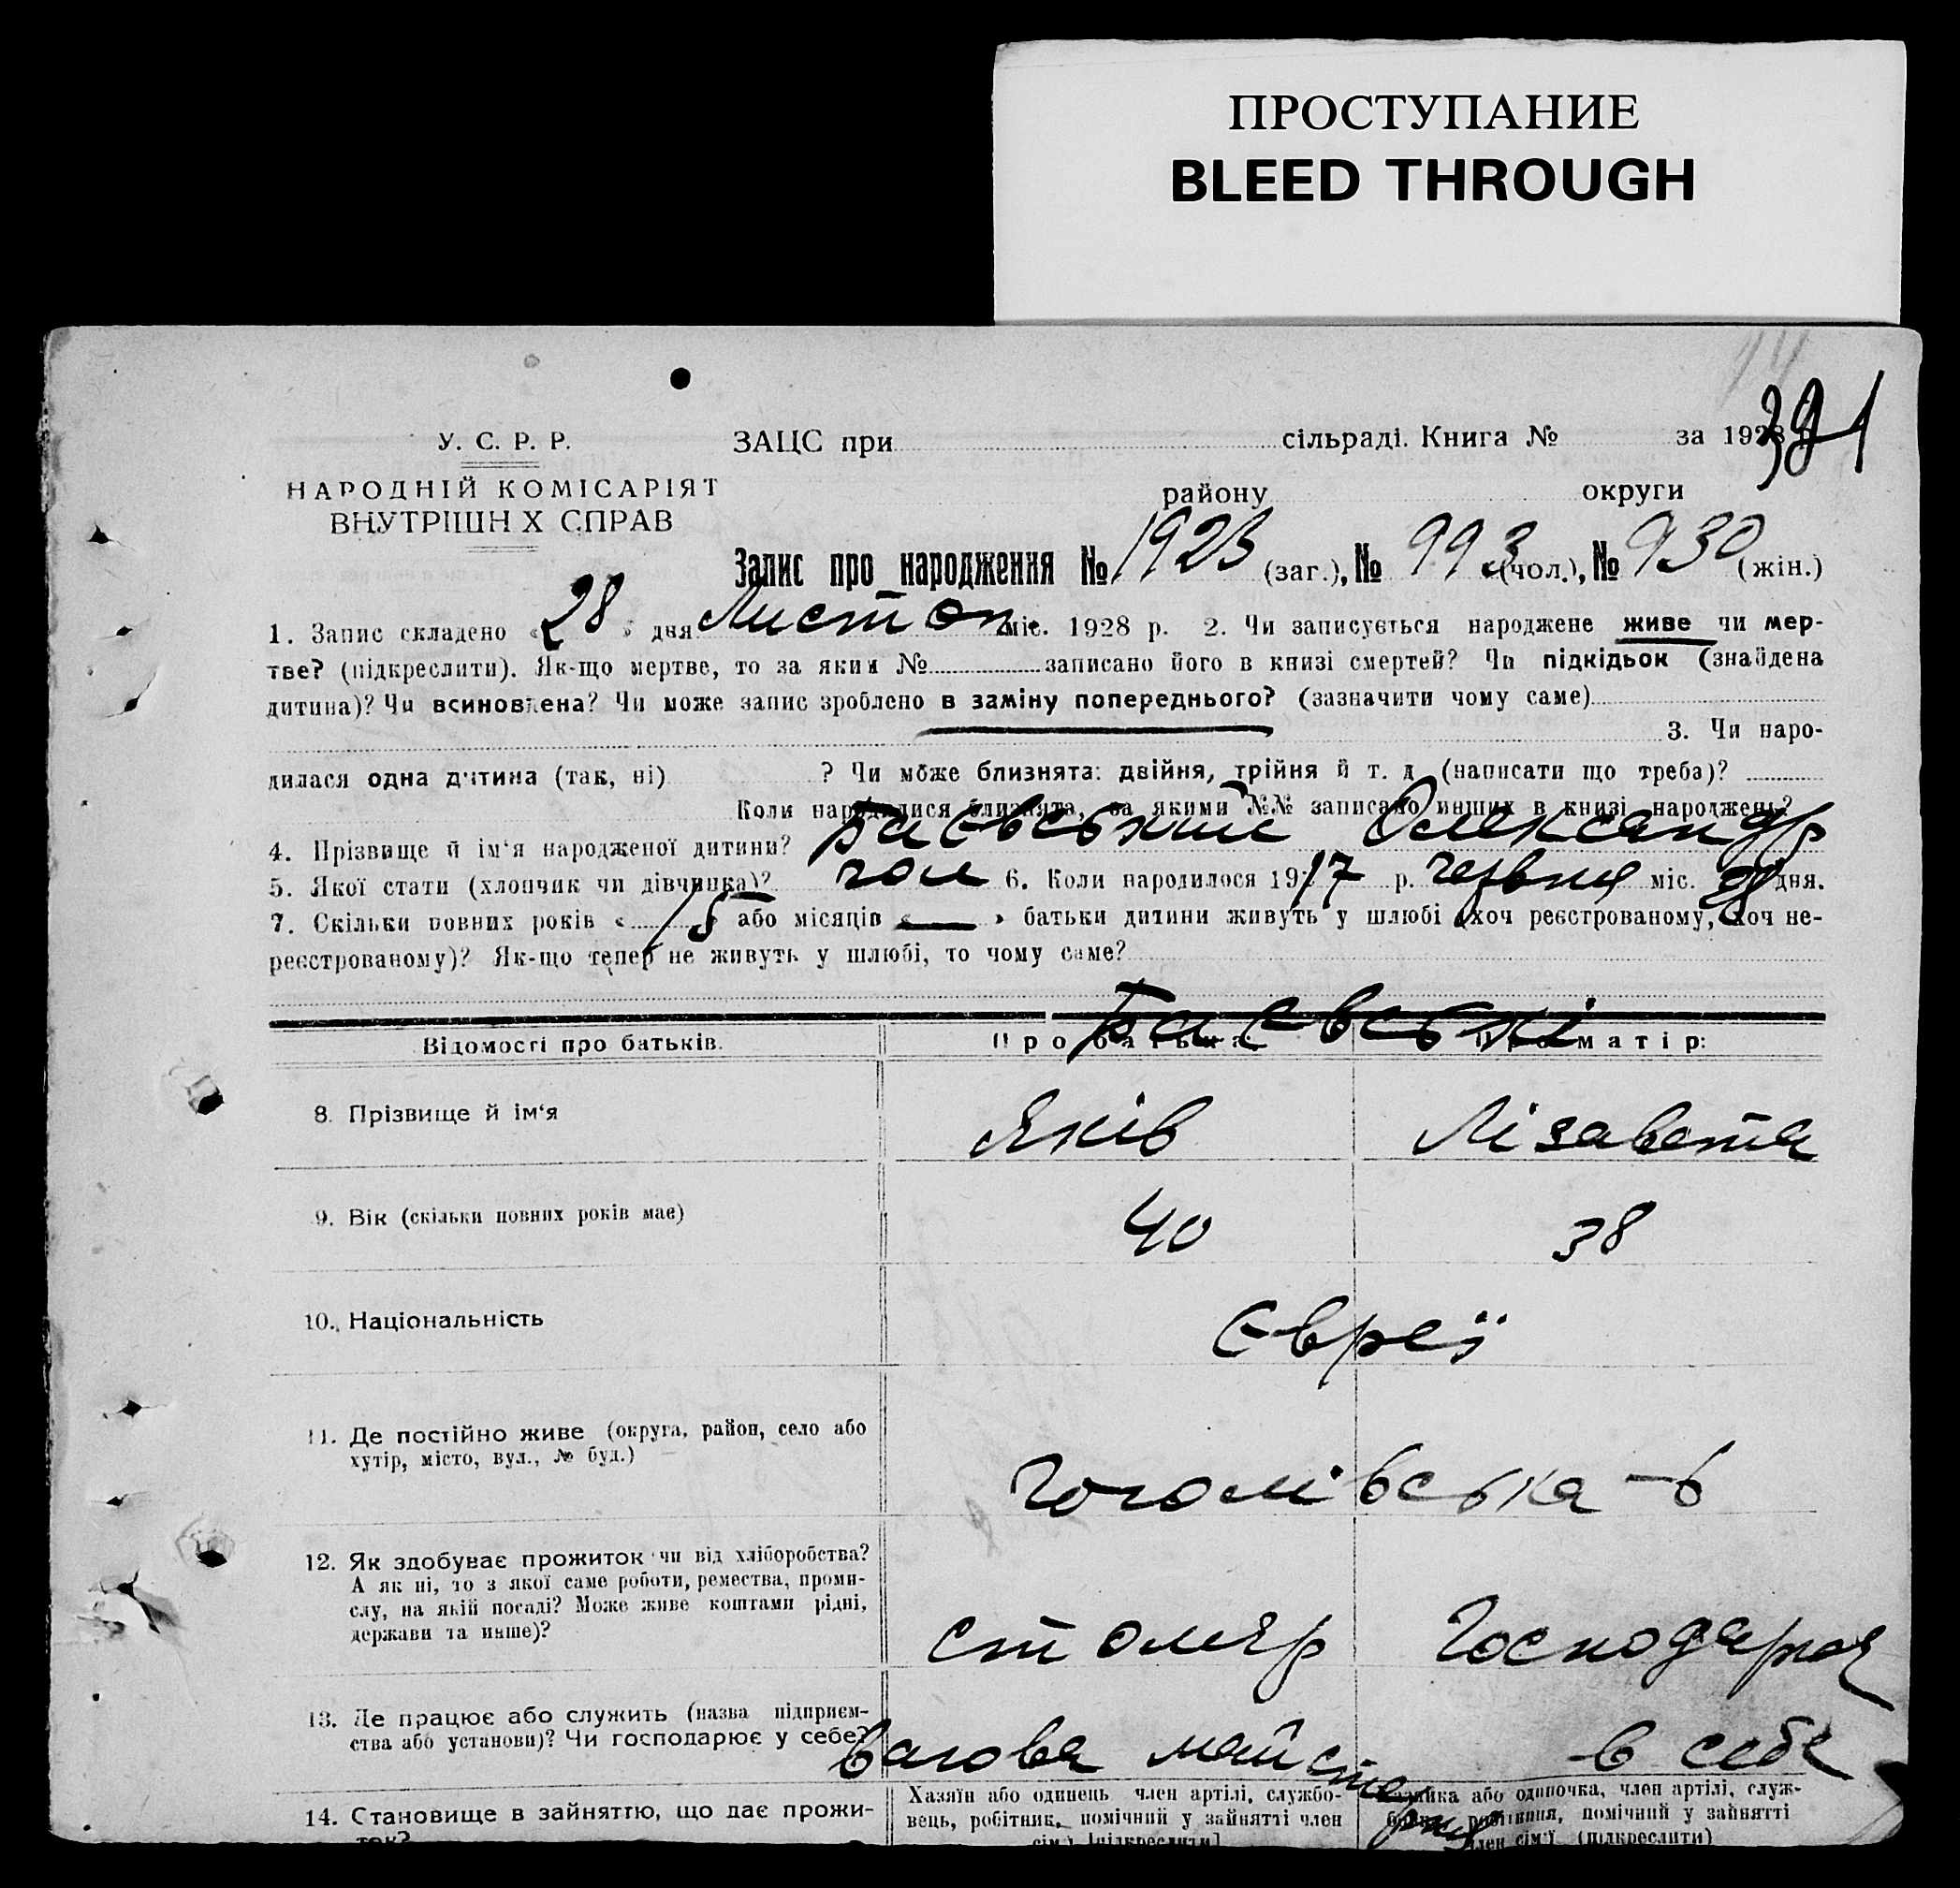 ПРОСТУПАНИЕ
BLEED THROUGH
391
У. С. Р. Р.
НАРОДНІЙ КОМІСАРІЯТ
ВНУТРІШН Х СПРАВ
ЗАЦС при сільраді. Книга № за 1928
району округи
Запис про народження № 1923 (заг.), № 993 (чол.), № 930 (жін.)
1. Запис складено «28» дня Листоп міс. 1928 р. 2. Чи записується народжене живе чи мер-
тве? (підкреслити). Як-що мертве, то за яким № записано його в книзі смертей? Чи підкідьок (знайдена
дитина)? Чи всиновлена? Чи може запис зроблено в заміну попереднього? (зазначити чому саме)
3. Чи наро-
дилася одна дитина (так, ні) ? Чи може близнята: двійня, трійня й т. д (написати що треба)?
Коли народилися близнята, за якими №№ записано инших в книзі народжень?
4. Прізвище й ім‘я народженої дитини? Баєвський Олександр
5. Якої стати (хлопчик чи дівчинка)? чол 6. Коли народилося 1917 р. червня міс. 28 дня.
7. Скільки повних років «15» або місяців «—» батьки дитини живуть у шлюбі (хоч реєстрованому, хоч не-
реєстрованому)? Як-що тепер не живуть у шлюбі, то чому саме?
Баєвські
Відомості про батьків. Про батька: Про матір:
8. Прізвище й ім‘я Яків Лізавета
9. Вік (скільки повних років має) 40 38
10. Національність Євреї
11. Де постійно живе (округа, район, село або
хутір, місто, вул., № буд.)
Гоголівська – 6
12. Як здобуває прожиток чи від хліборобства?
А як ні, то з якої саме роботи, ремества, проми-
слу, на якій посаді? Може живе коштами рідні,
держави та инше)?
столяр Господарка
13. Де працює або служить (назва підприєм-
ства або установи)? Чи господарює у себе?
Вагова майстерня в себе
14. Становище в зайняттю, що дає прожи-
ток?
Хазяїн або одинець член артілі, службо-
вець, робітник, помічний у зайнятті член
сім‘ї [підкреслити]
Хазяйка або одиночка, член артілі, служ-
бовка, робітниця, помічний у зайнятті
член сім‘ї (підкреслити)